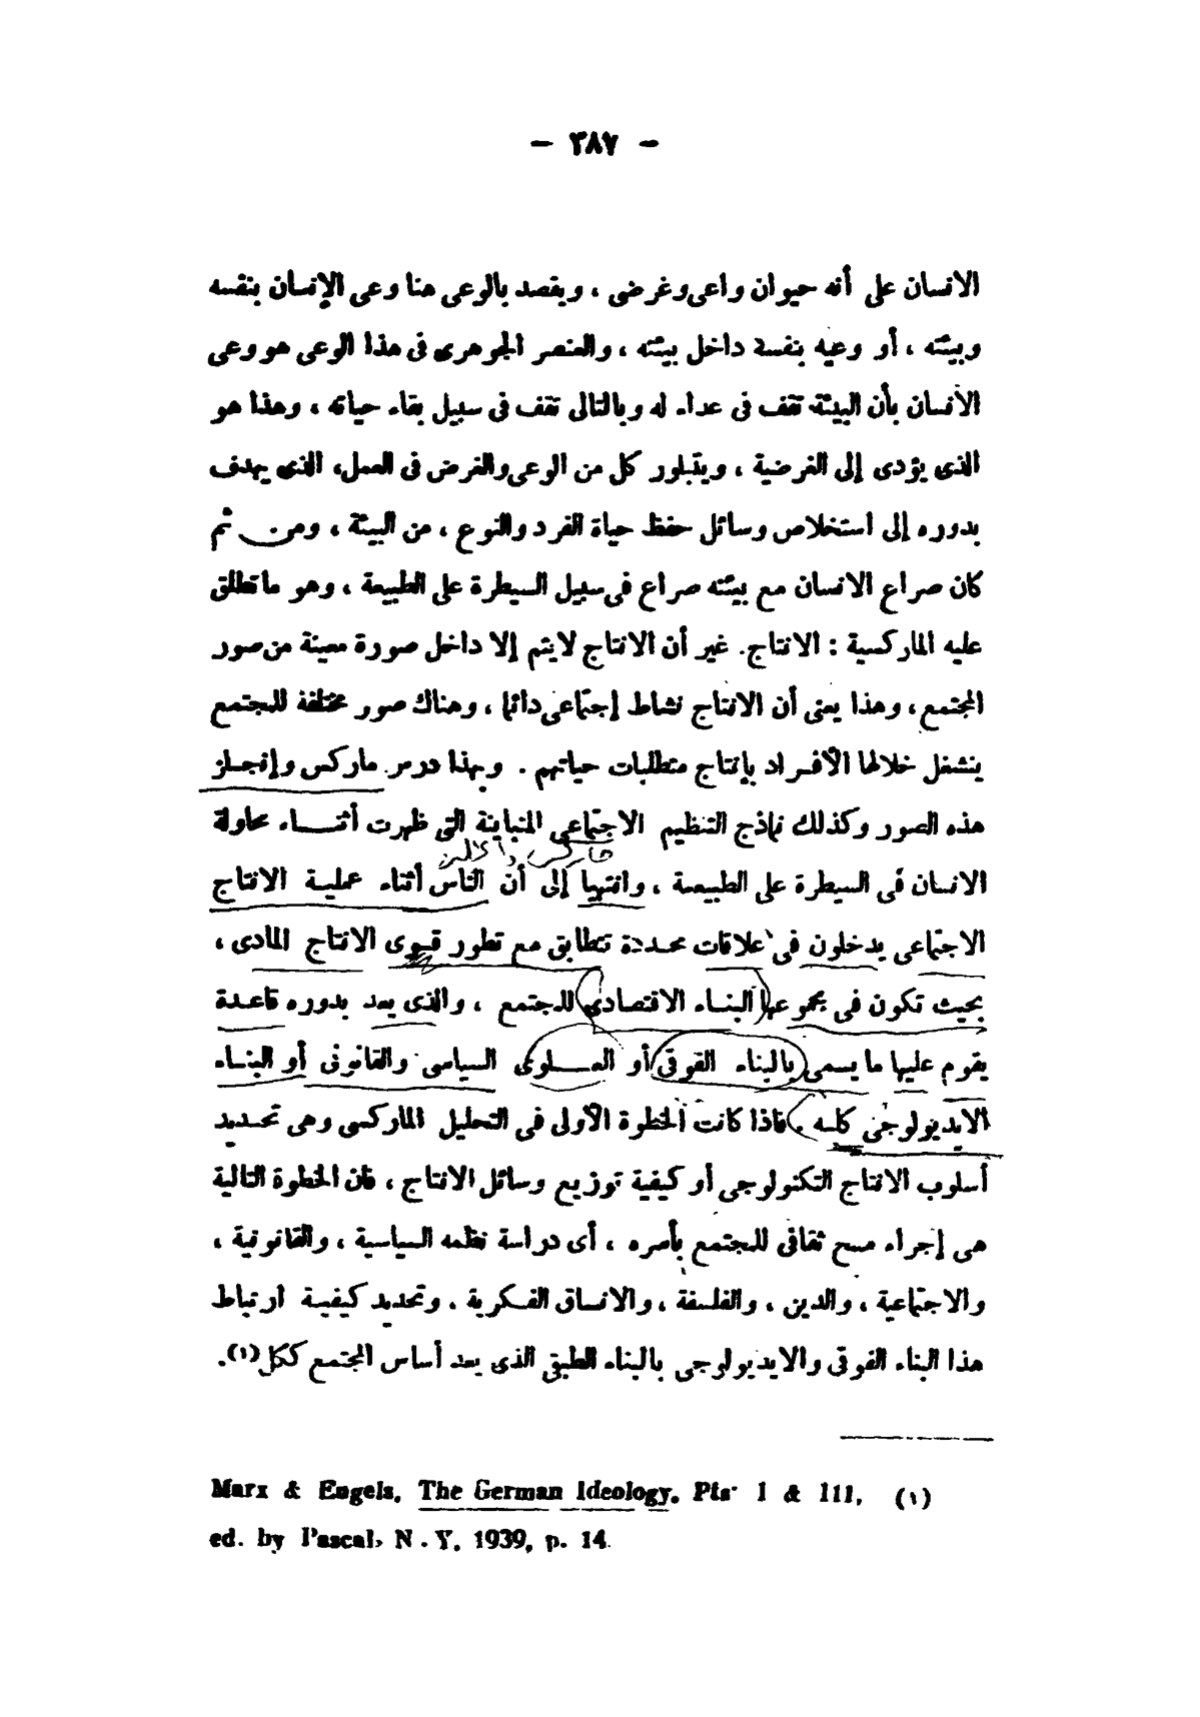 — ٣٨٧ —
الانسان على أنه حيوان واعى وغرضى ، ويقصد بالوعى هنا وعى الإنسان بنفسه
وبيئته ، أو وعيه بنفسة داخل بيئته ، والعنصر الجوهرى فى هذا الوعى هو وعى
الأنسان بأن البيئة تقف فى عداء له وبالتالى تقف فى سبيل بقاء حياته ، وهذا هو
الذى يؤدى إلى الغرضية ، ويتبلور كل من الوعى والغرض فى العمل، الذى يهدف
بدوره إلى استخلاص وسائل حفظ حياة الفرد والنوع ، من البيئة ، ومن ثم
كان صراع الانسان مع بيئته صراع فى سبيل السيطرة على الطبيعة ، وهو ما تطلق
عليه الماركسية : الانتاج. غير أن الانتاج لايتم إلا داخل صورة معينة من صور
المجتمع، وهذا يعنى أن الانتاج نشاط إجتماعى دائما ، وهناك صور مختلفة للمجتمع
ينشغل خلالها الأفراد بإنتاج متطلبات حياتهم . وبهذا درس ماركس وإنجلز
هذه الصور وكذلك نماذج التنظيم الاجتماعى المتباينة التى ظهرت أثناء محاولة
الانسان فى السيطرة على الطبيعة ، وانتهيا إلى أن الناس أثناء عملية الانتاج
الاجتماعى يدخلون فى علاقات محددة تتطابق مع تطور قوى الانتاج المادى ،
بحيث تكون فى مجموعها البناء الاقتصادى للمجتمع ، والذى يعد بدوره قاعدة
يقوم عليها ما يسمى بالبناء الفوقى أو العلوى السياسى والقانونى أو البناء
الايديولوجى كله . فاذا كانت الخطوة الأولى فى التحليل الماركسى وهى تحديد
أسلوب الانتاج التكنولوجى أو كيفية توزيع وسائل الانتاج ، فان الخطوة التالية
هى إجراء مسح ثقافى للمجتمع بأسره ، أى دراسة نظمه السياسية ، والقانونية ،
والاجتماعية ، والدين ، والفلسفة ، والانساق الفكرية ، وتحديد كيفية ارتباط
هذا البناء الفوقى والايديولوجى بالبناء الطبقى الذى يعد أساس المجتمع ككل (١).
Marx & Engels, The German Ideology, Pts 1 & 111, (١)
ed. by Pascal, N . Y. 1939, p. 14.